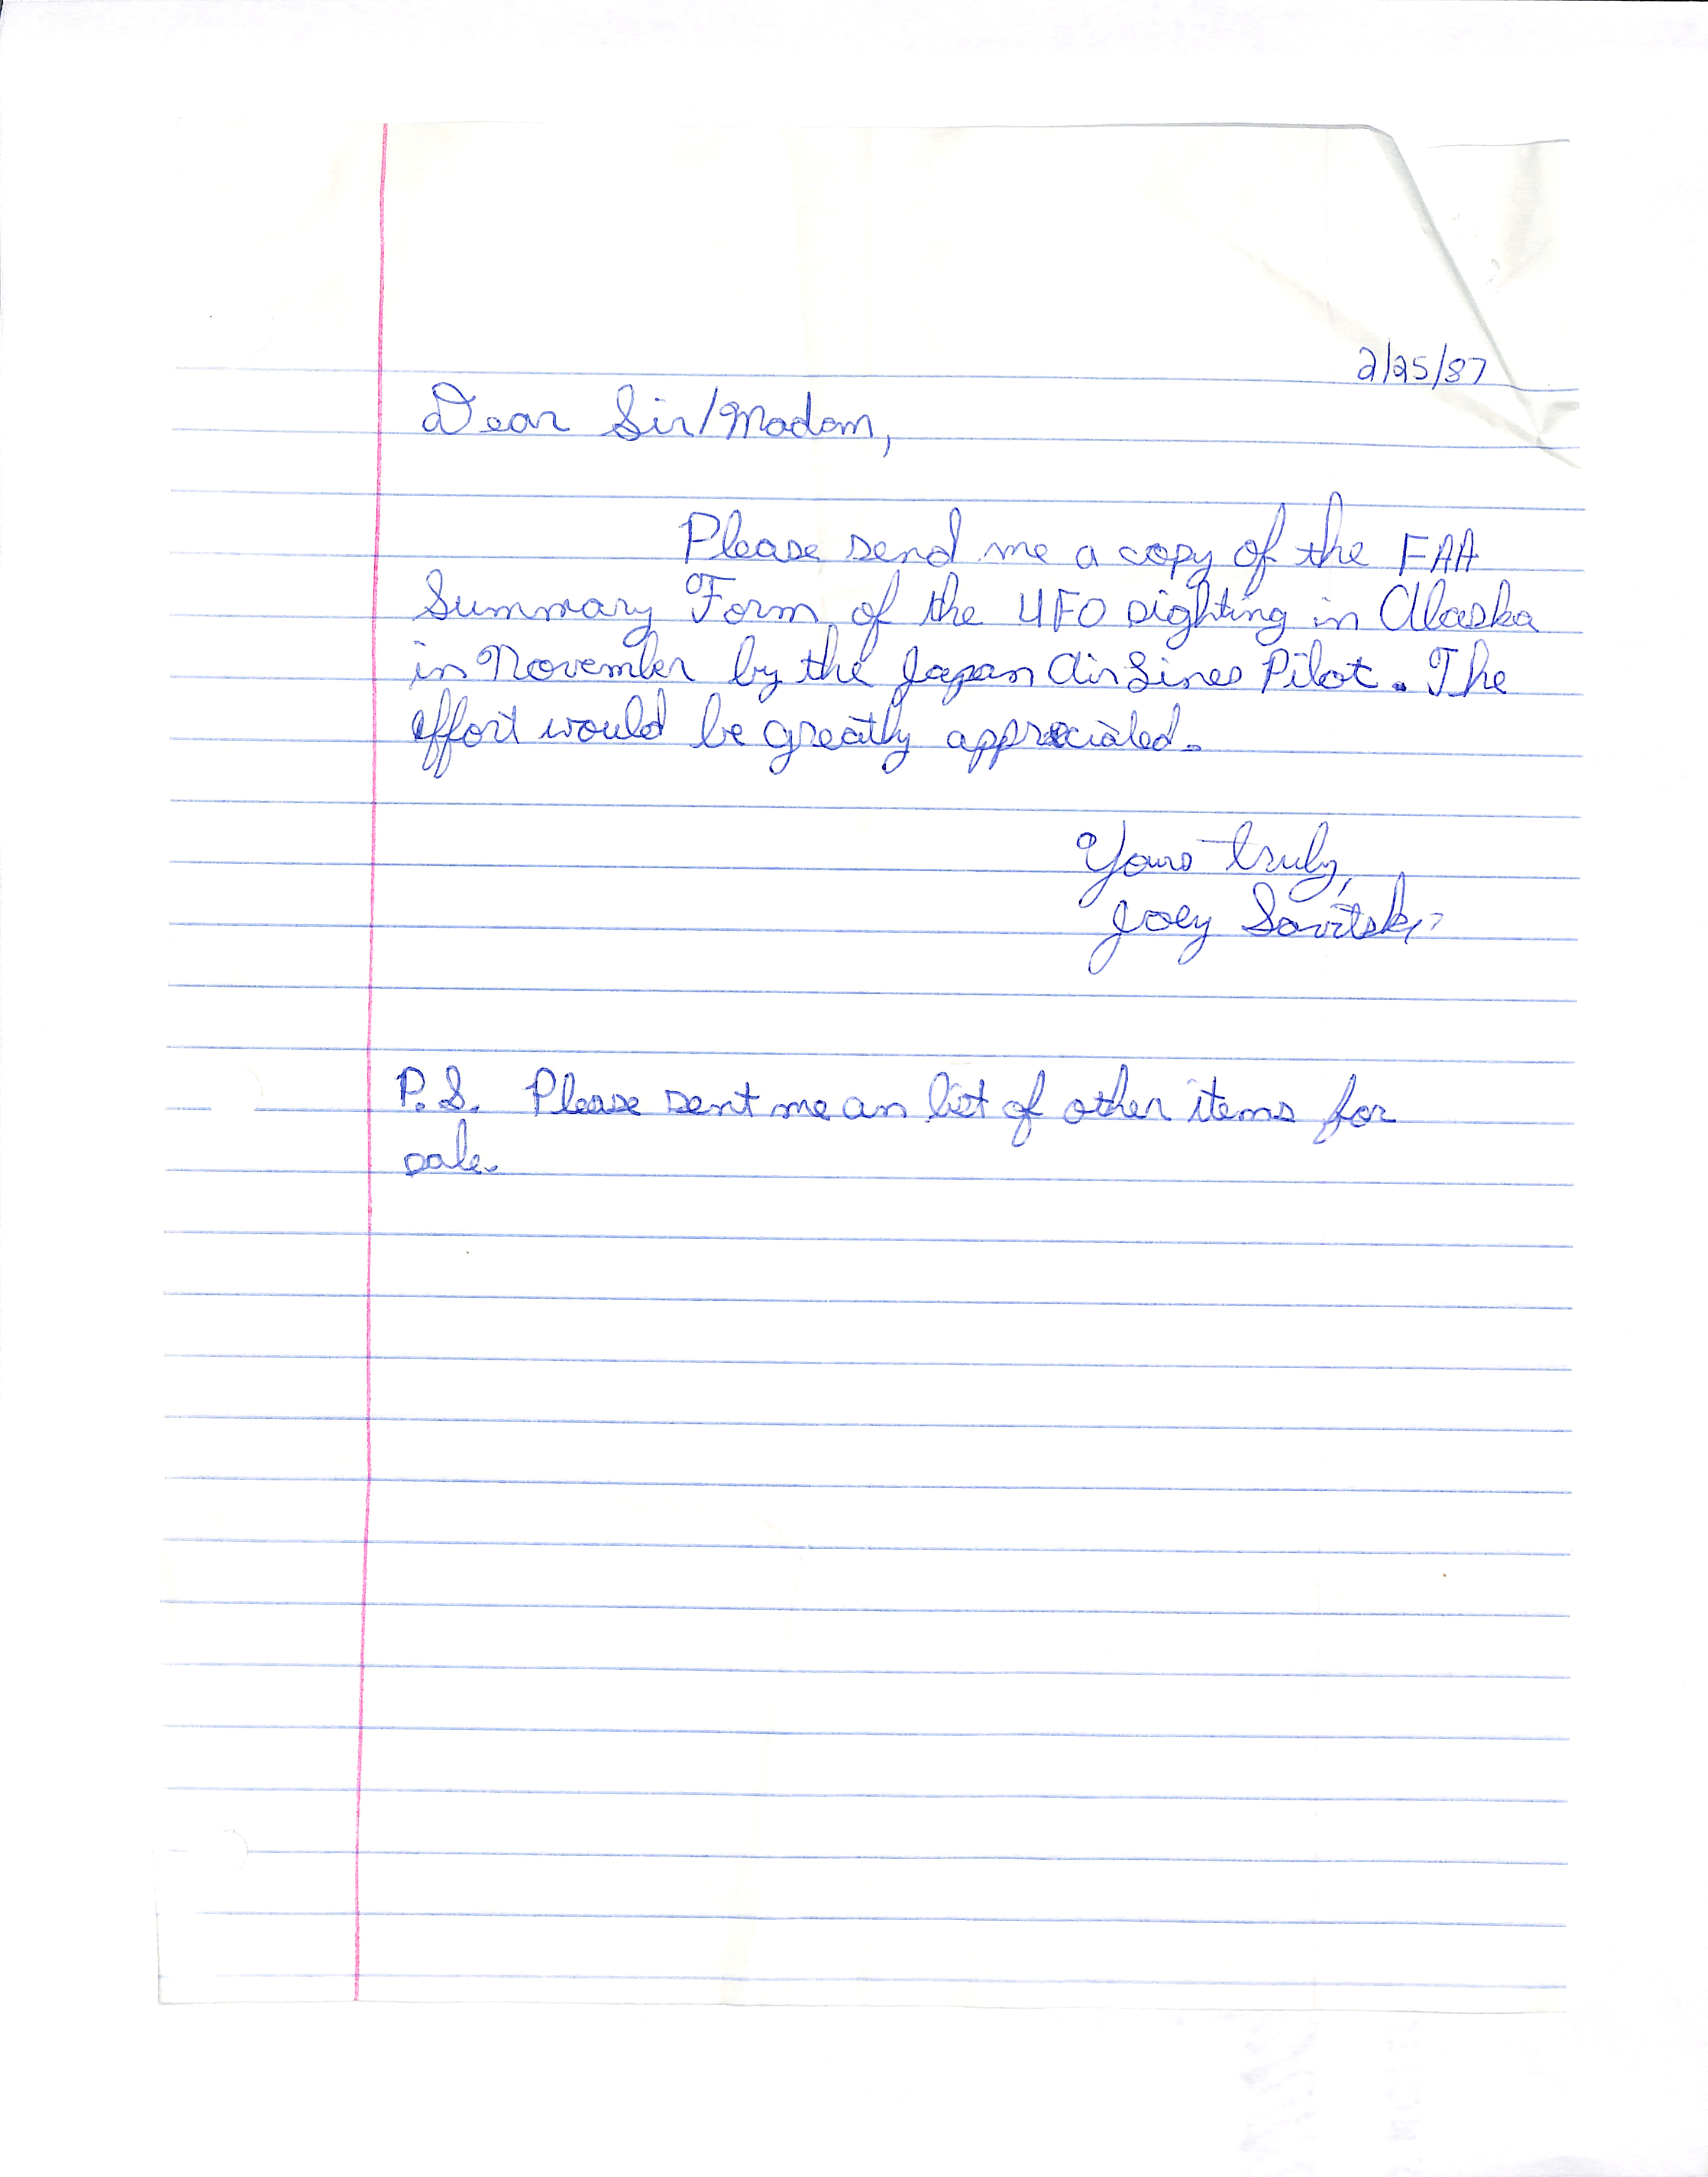 2/25/87
Dear Sir/Madam,
Please send me a copy of the FAA
Summary Form of the UFO sighting in Alaska
in November by the Japan Air Lines Pilot. The
effort would be greatly appreciated.
Yours truly,
Joey Savitski
P.S. Please sent me an list of other items for
sale.